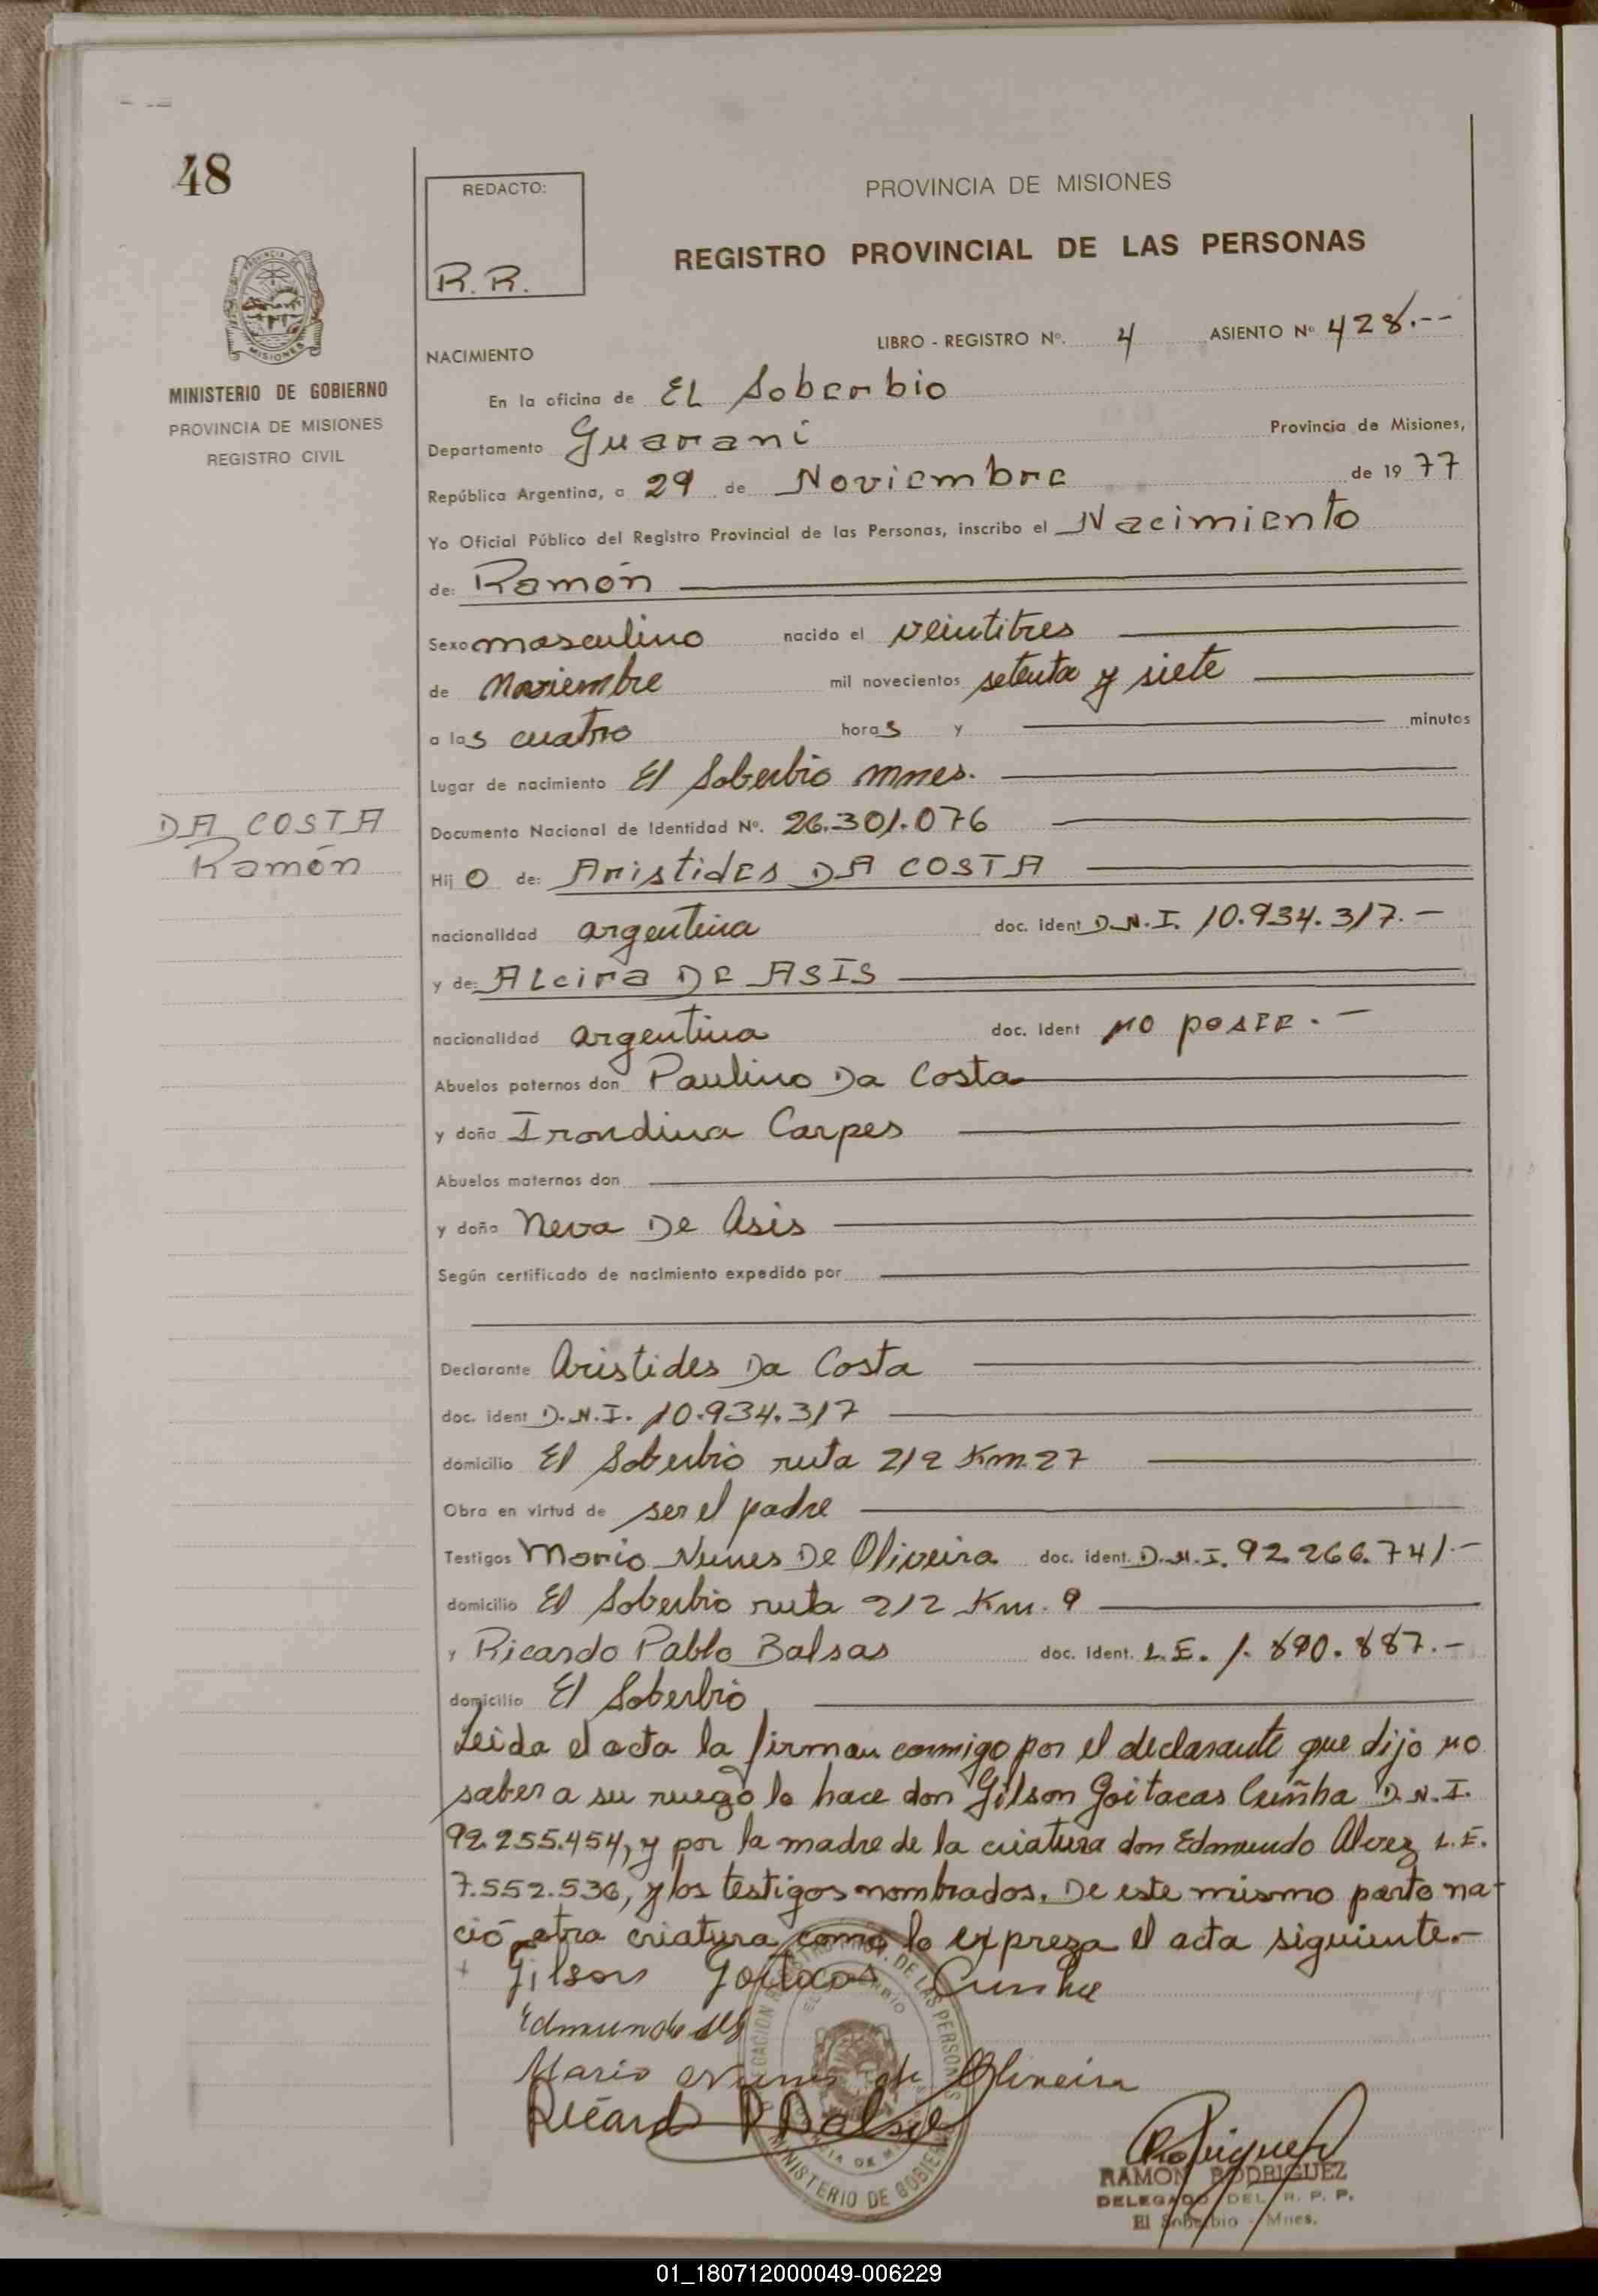 48
REDACTO:
R. R.
PROVINCIA DE MISIONES
REGISTRO PROVINCIAL DE LAS PERSONAS
MINISTERIO DE GOBIERNO
PROVINCIA DE MISIONES
REGISTRO CIVIL
LIBRO - REGISTRO Nº. 4 ASIENTO Nº 428.--
NACIMIENTO
En la oficina de EL Soberbio
Departamento Guarani Provincia de Misiones,
República Argentina, a 29 de Noviembre de 1977
Yo Oficial Público del Registro Provincial de las Personas, inscribo el Nacimiento
de: Ramón
Sexo masculino nacido el veintitres
de Noviembre mil novecientos setenta y siete
a las cuatro horas y minutos
Lugar de nacimiento El Soberbio Mnes.
DA COSTA
Ramón
Documento Nacional de Identidad Nº. 26.301.076
Hijo de: Aristides DA COSTA
nacionalidad argentina doc. ident D.N.I. 10.934.317.-
y de: Alcira DE ASIS
nacionalidad argentina doc. ident no poseE.-
Abuelos paternos don Paulino Da Costa
y doña Irondina Carpes
Abuelos maternos don
y doña Neva De Asis
Según certificado de nacimiento expedido por
Declarante Aristides Da Costa
doc. ident D.N.I. 10.934.317
domicilio El Soberbio ruta 212 Km. 27
Obra en virtud de ser el padre
Testigos Mario Nunes De Oliveira doc. ident. D.N.I. 92.266.741.-
domicilio El Soberbio ruta 212 Km. 9
y Ricardo Pablo Balsas doc. ident. L.E. 1.890.887.-
domicilio El Soberbio
Leida el acta la firman conmigo por el declarante que dijo no
saber a su ruego lo hace don Gilson Goitacas Cuñha D.N.I.
92.255.454, y por la madre de la criatura don Edmundo Alvez L.E.
7.552.536, y los testigos nombrados. De este mismo parto na-
ció otra criatura como lo expreza el acta siguiente.-
Gilson Goitacas Cunha
Edmundo
Mario Nunes de Oliveira
Ricardo P Balsas
Rodriguez
RAMON RODRIGUEZ
DELEGADO DEL R. P. P.
El Soberbio - Mnes.
MINISTERIO DE GOBIERNO
01_180712000049-006229